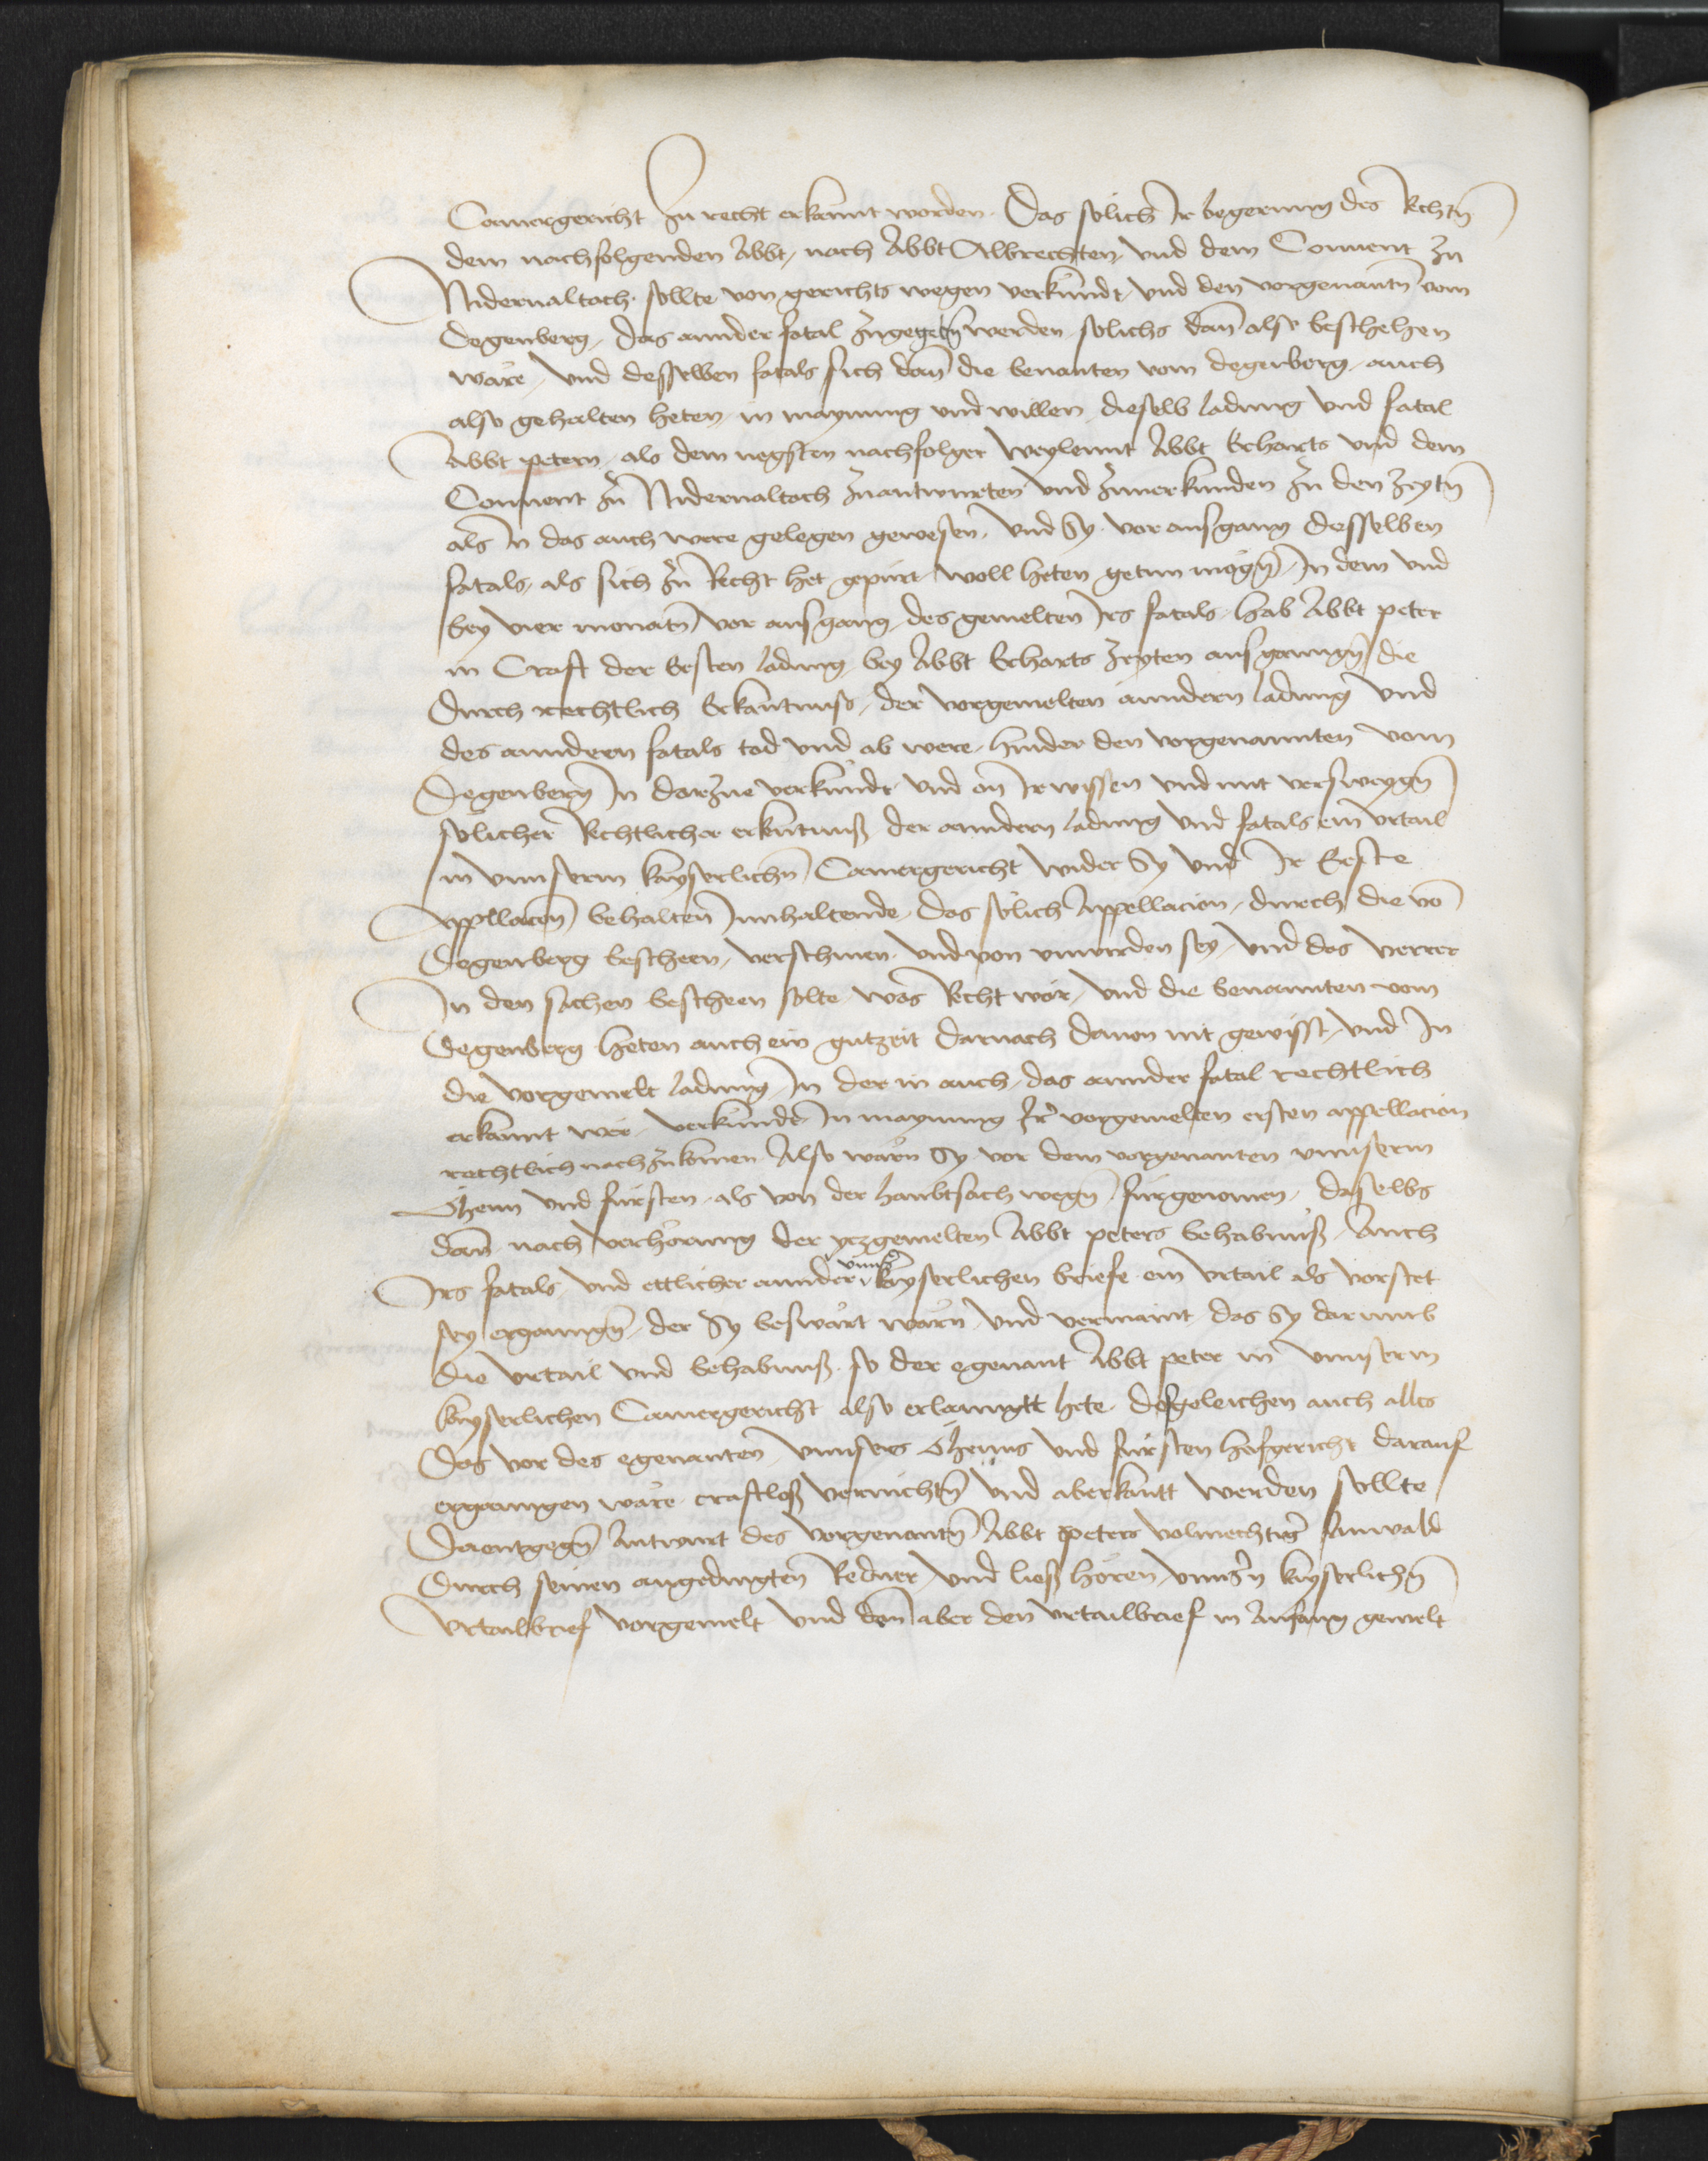 Camergericht zu recht erkannt worden. Das solich Ir begerung des Rechtn̄
dem nachfolgenden Abbt, nach Abbt Albrechten, vnd dem Conuent zu
Nidernaltach. sollte von gerichts wegen verkundt, vnd den vorgenantn̄ vom
Degenberg, das annder fatal zugegebn̄ werden, solichs dan̄ also beschehen
wäre, vnd desselben fatals sich dan̄ die benanten vom degenberg, auch
also gehalten heten, in maynung vnd willen, dieselb ladung vnd fatal
Abbt petern, als dem negsten nachfolger weylennt Abbt Erharts vnd dem
Conuent zu Nidernaltach zuantwurten vnd zuuerkunden zu den zeytn̄
als In das auch were gelegen gewesen, vnd Sy. vor ausgang desselben
fatals, als sich zu Recht het gepürt, woll heten getun mögn̄, In dem vnd
bey vier monatn̄ vor ausgang, des gemelten Irs fatals. hab Abbt peter
in Craft der Ersten ladung, bey Abbt Erharts zeyten ausganngn̄, die
durch rechtlich Erkantnuss, der vorgemelten anndern ladung vnd
des anndern fatals tod vnd ab were, hinder den vorgenannten vom
Degenberg In darzue verkundt vnd on Ir wissen vnd mit versweygn̄
solicher Rechtlicher erkentnuß der anndern ladung vnd fatals ein vrtail
in vnnserm kayserlichn̄ Camergericht wider Sy vnd Ir Erste
Appellacon̄ behalten Innhaltende, das solich Appellacion, durch die vō
Degenberg bescheen, versessen vnd von vnwirden sey, vnd das verrer
In den sachen bescheen solte, was Recht wär, vnd die benannten vom
Degenberg heten auch ein gutzeit darnach dauon nit gewisst, vnd In
die vorgemelt ladung, In der in auch, das annder fatal rechtlich
erkannt wer, verkundt, In maynung Ir vorgemelten ersten appellacion
rechtlich nachzukomen. Also wärn Sy vor dem vorgenanten vnnserm
Öhem vnd fürsten, als von der haubtsach wegn̄, fürgenomen, daselbs
dan̄ nach verhörung der yezgemelten Abbt peters behabnuß, Auch
Irs fatals vnd ettlicher annder vnnser kayserlichen briefe ein vrtail als vorstet
sey ergangn̄, der Sy beswärt wärn vnd vermaint, das Sy darumb
die vrtail vnd behabnuß, so der egenant Abbt peter in vnnserm
kayserlichen Camergericht also erlanngtt hete. desgeleichen auch alles
Das vor des egenanten vnnsers Öhems vnd fürsten hofgericht darauf
ergangen wäre, craftloß vernichtn̄ vnd aberkantt werden sollte
Dorentgegn̄ Antwurt des vorgenantn̄ Abbt peters volmechtiger Anwald
durch seinen angedingten Redner, vnd ließ hören, vnnsern kayserlichn̄
vrtailbrief vorgemelt vnd den̄ aber den vrtailbrief in Anfang gemelt